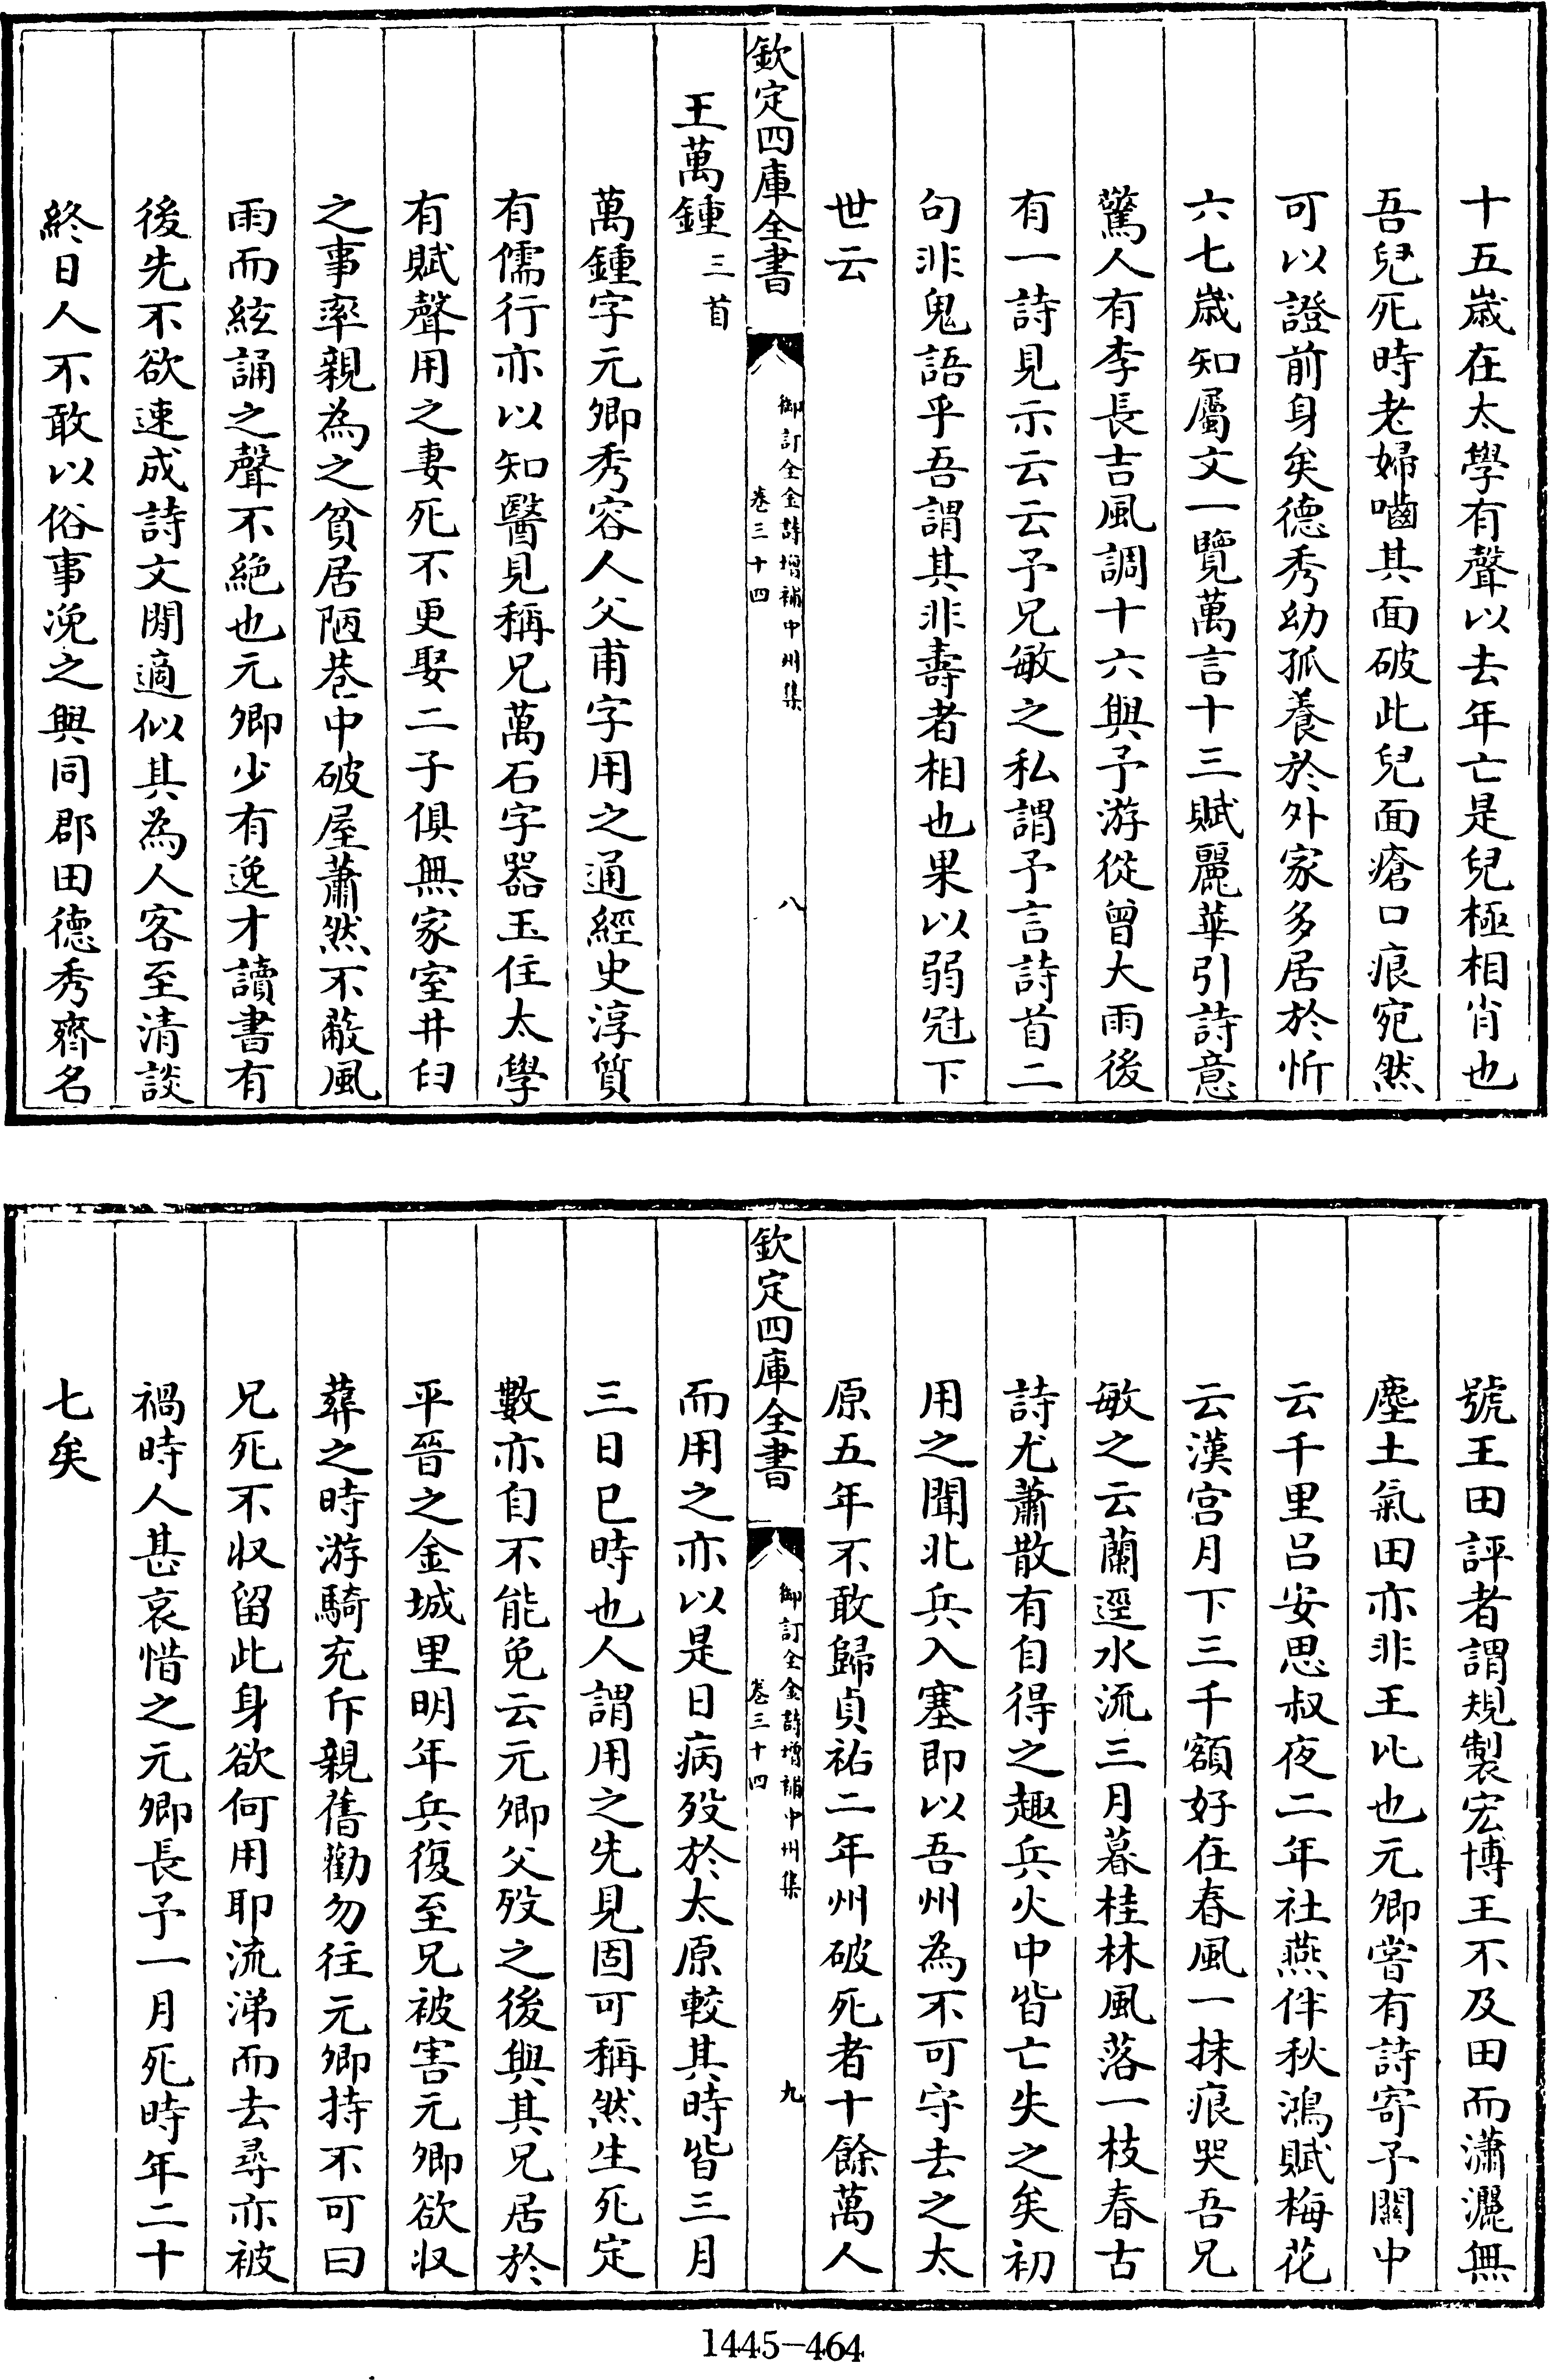 十五歳在太學有聲以去年亡是兒極相肖也
吾兒死時老婦嚙其面破此兒面瘡口痕宛然
可以證前身矣德秀幼孤養於外家多居於忻
六七歳知屬文一覽萬言十三賦麗華引詩意
驚人有李長吉風調十六與予游從曾大雨後
有一詩見示云云予兄敏之私謂予言詩首二
句非鬼語乎吾謂其非壽者相也果以弱冠下
世云
欽定四庫全書
御訂全金詩增補中州集
卷三十四
八
王萬鍾三首
萬鍾字元卿秀容人父甫字用之通經史淳質
有儒行亦以知醫見稱兄萬石字器玉住太學
有賦聲用之妻死不更娶二子俱無家室井臼
之事率親為之貧居陋巷中破屋蕭然不蔽風
雨而絃誦之聲不絶也元卿少有逸才讀書有
後先不欲速成詩文閒適似其為人客至清談
終日人不敢以俗事浼之與同郡田德秀齊名
號王田評者謂規製宏博王不及田而瀟灑無
塵土氣田亦非王比也元卿嘗有詩寄予關中
云千里呂安思叔夜二年社燕伴秋鴻賦梅花
云漢宮月下三千額好在春風一抹痕哭吾兄
敏之云蘭逕水流三月暮桂林風落一枝春古
詩尤蕭散有自得之趣兵火中皆亡失之矣初
用之聞北兵入塞即以吾州為不可守去之太
原五年不敢歸貞祐二年州破死者十餘萬人
欽定四庫全書
御訂全金詩增補中州集
卷三十四
九
而用之亦以是日病歿於太原較其時皆三月
三日巳時也人謂用之先見固可稱然生死定
數亦自不能免云元卿父歿之後與其兄居於
平晉之金城里明年兵復至兄被害元卿欲収
葬之時游騎充斥親舊勸勿往元卿持不可曰
兄死不収留此身欲何用耶流涕而去尋亦被
禍時人甚哀惜之元卿長予一月死時年二十
七矣
1445-464